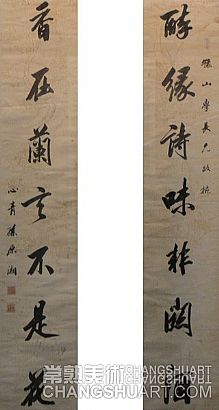 醉緣詩味非關酒
香在蘭言不是花
心青孫原湘
常熟美術
CHANGSHUART
CHANGSHUART.COM